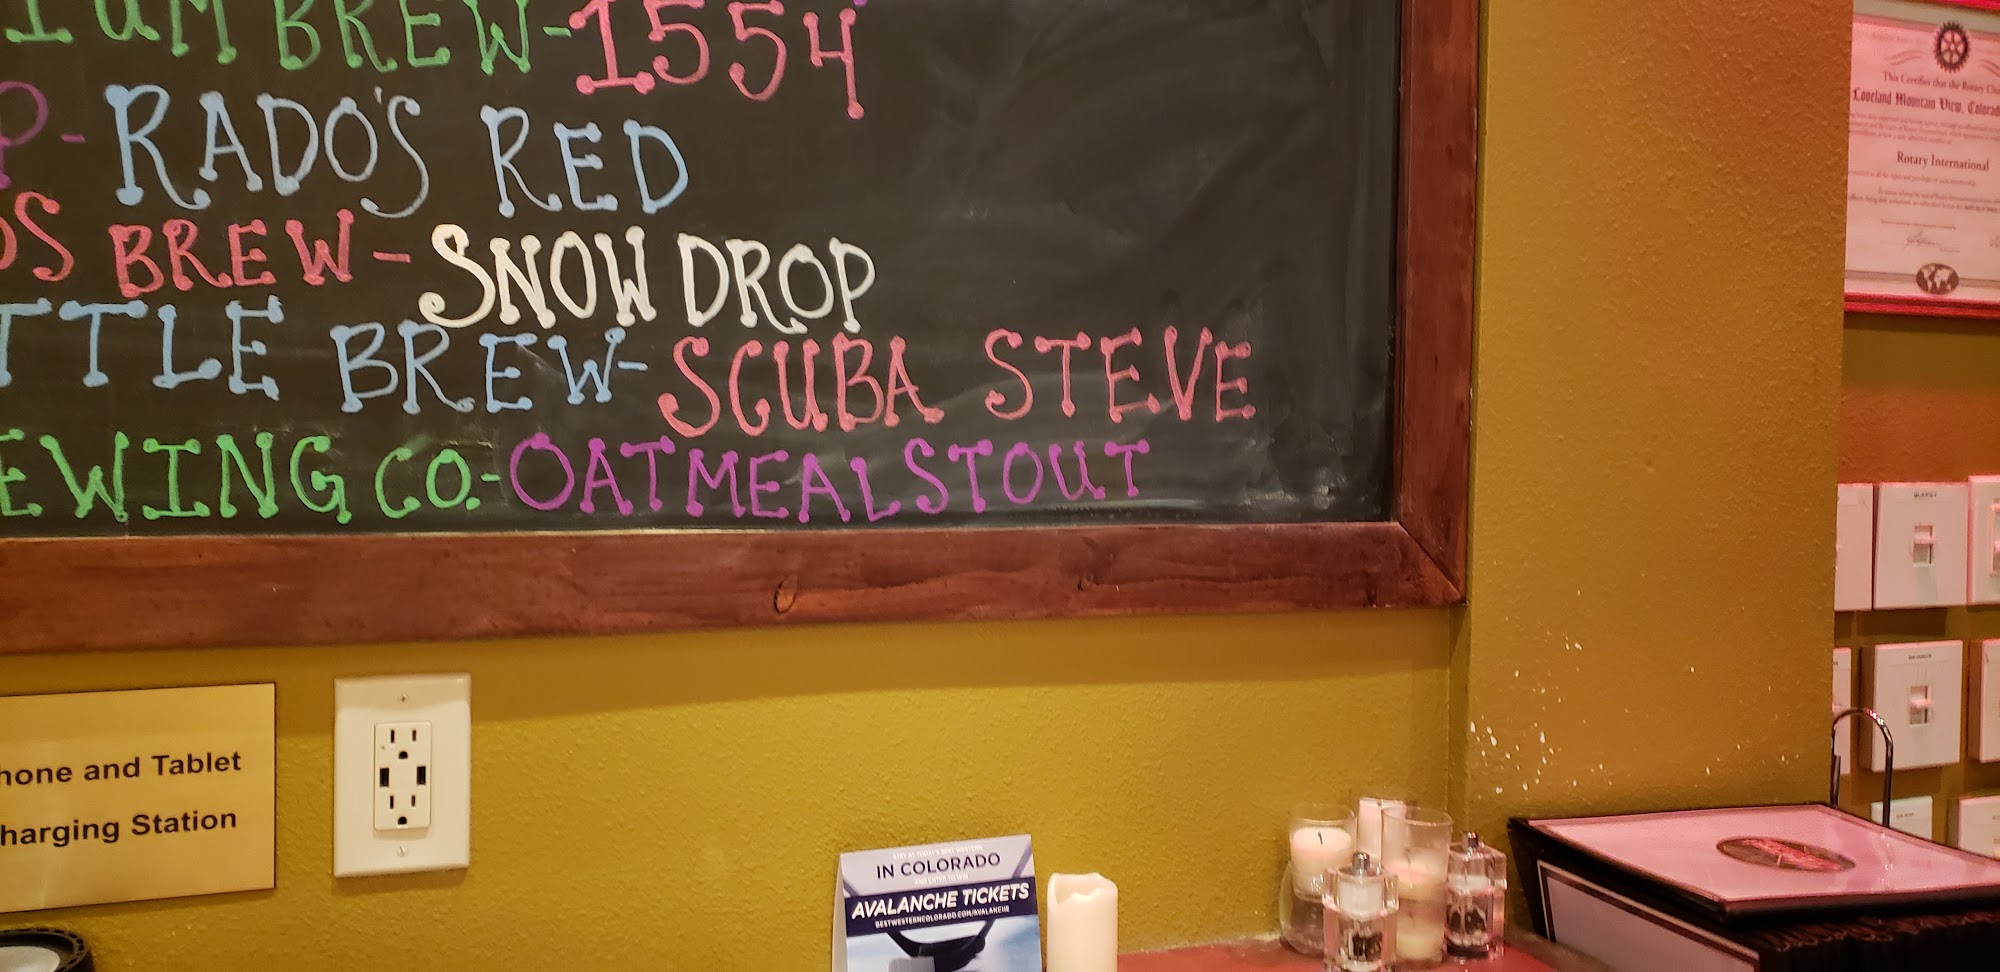 IUM BREW-1554
P-RADO'S RED
OS BREW-SNOW DROP
TTLE BREW-SCUBA STEVE
EWING CO.-OATMEAL STOUT
hone and Tablet
harging Station
STAY AT TODAY'S BEST WESTERN
IN COLORADO
AND ENTER TO WIN
AVALANCHE TICKETS
BESTWESTERNCOLORADO.COM/AVALANCHE
This Certifies that the Rotary Clu
Loveland Mountain View, Colorad
Rotary International